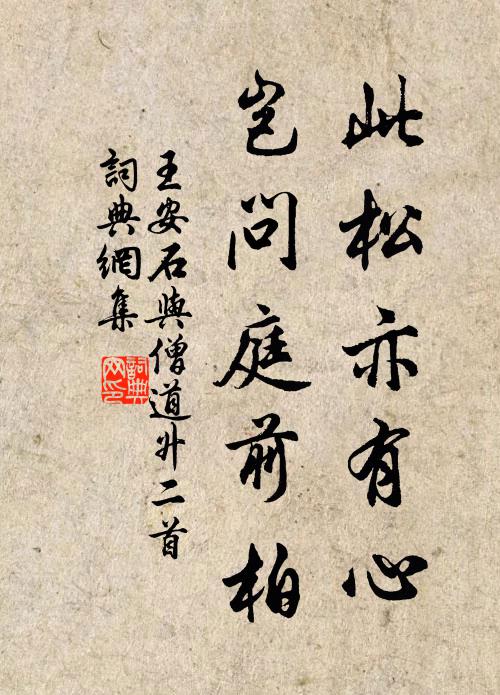 此松亦有心
岂問庭前柏
王安石與僧道升二首
詞典網集
詞典
网印